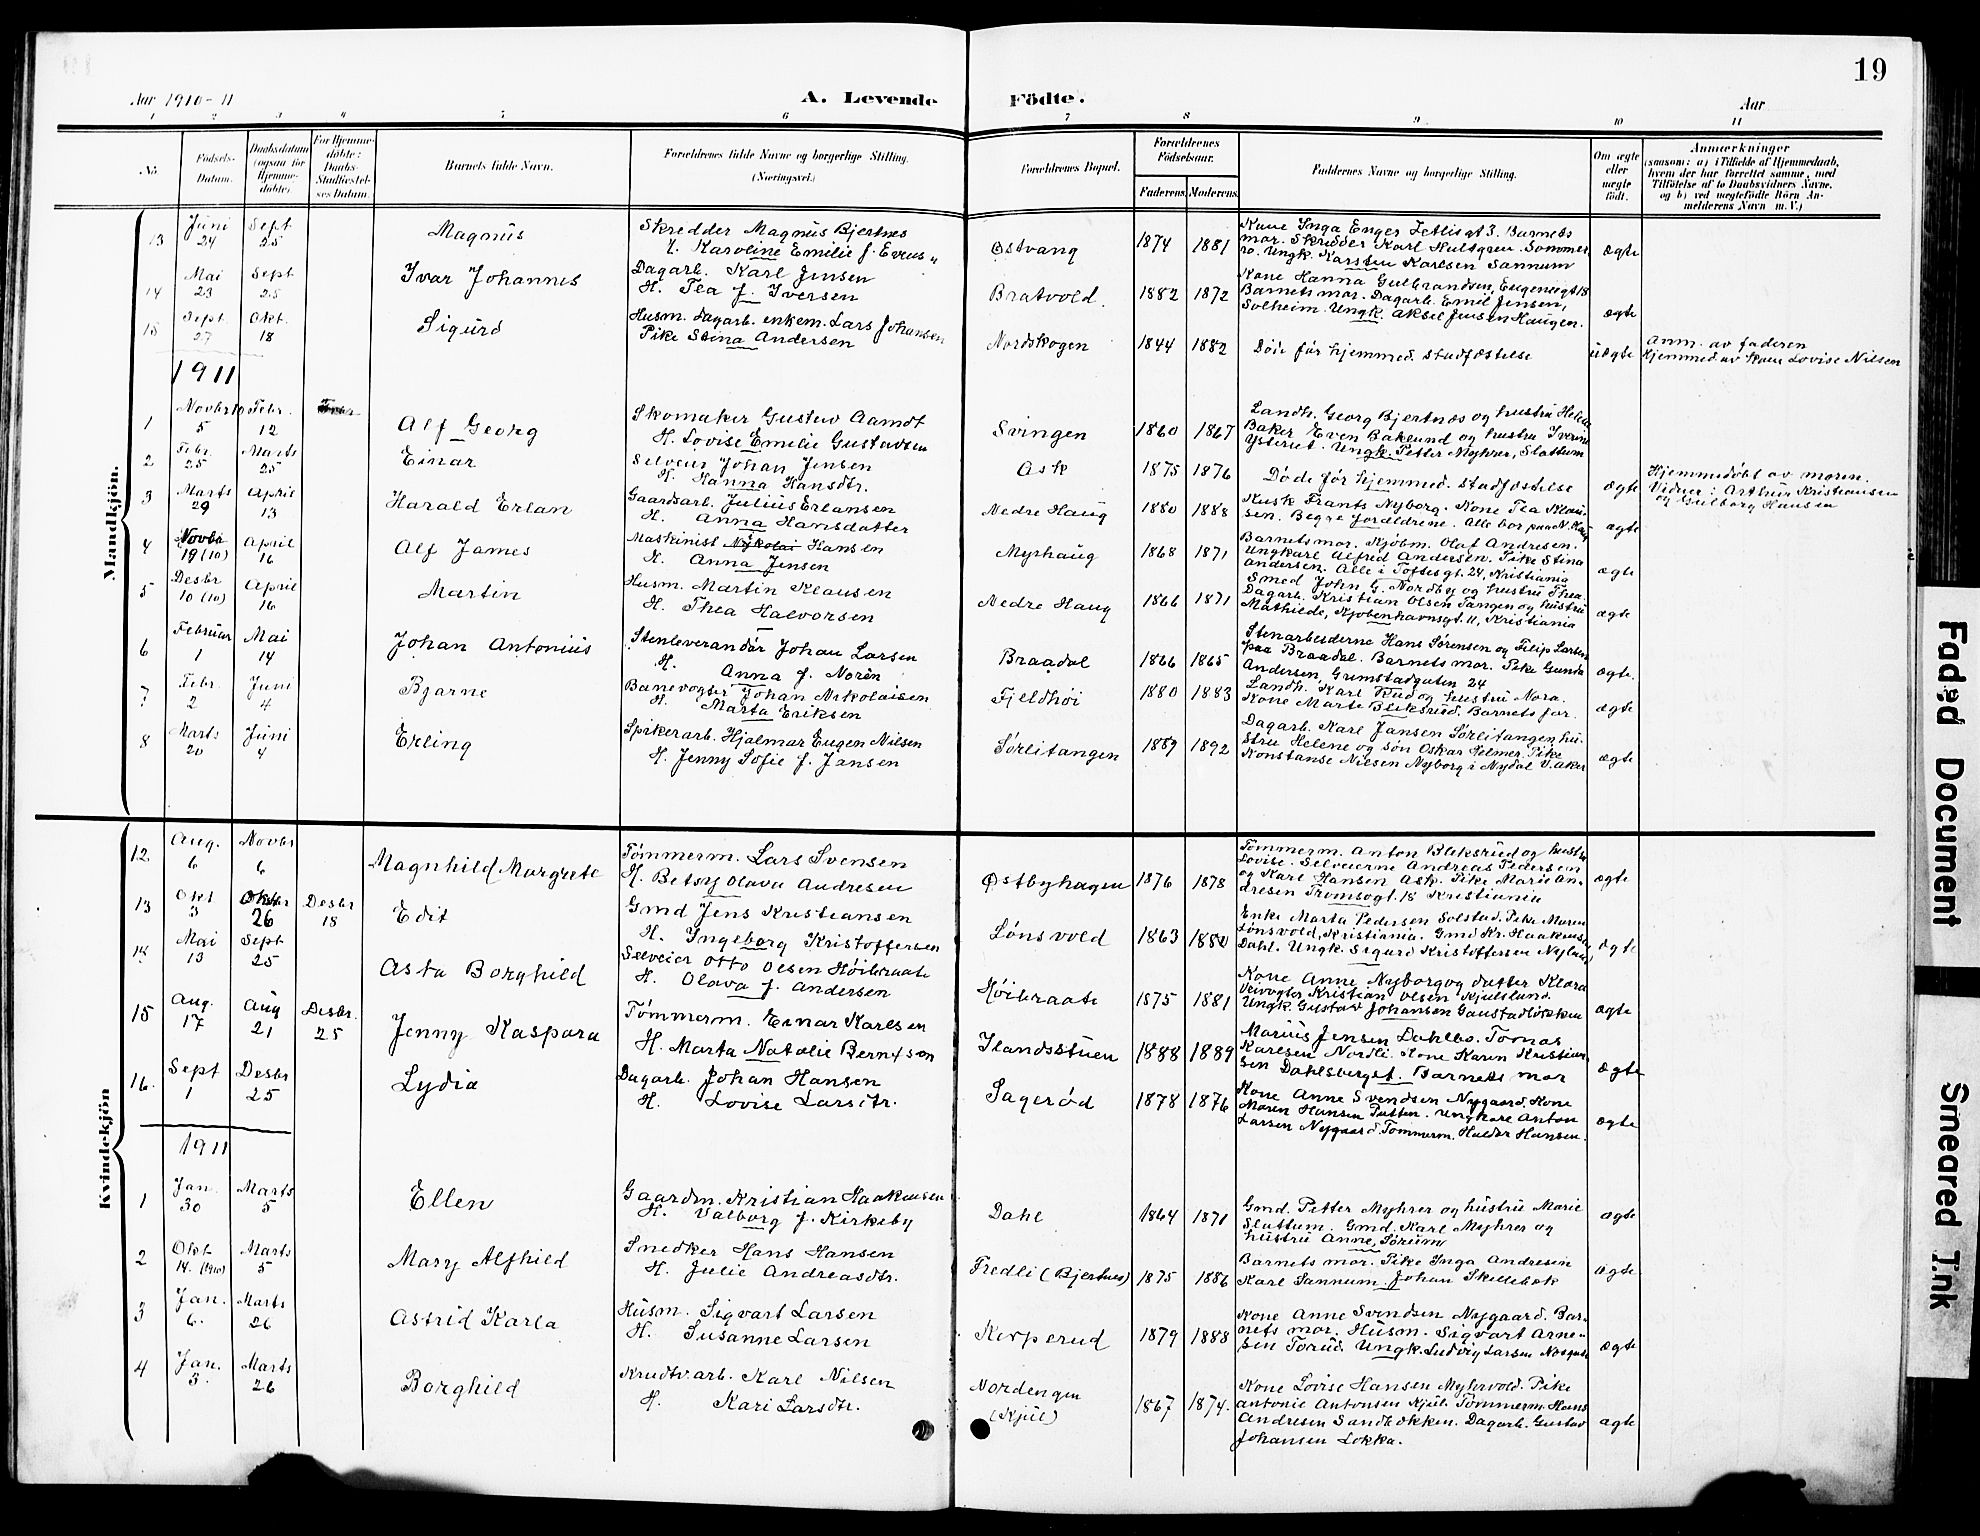 19
Aar 1910-11
A. Levende Födte.
Aar
1 2 3 4 5 6 7 8 9 10 11
No.
Födsels-Datum.
Daabsdatum (ogsaa for Hjemme-döbte).
For Hjemme-döbte: Daabs-Stadfæstel-ses Datum.
Barnets fulde Navn.
Forældrenes fulde Navne og borgerlige Stilling. (Næringsvei.)
Forældrenes Bopæl.
Forældrenes Födselsaar.
Faderens. Moderens.
Faddernes Navne og borgerlige Stilling.
Om ægte eller uægte födt.
Anmærkninger
(saasom: a) i Tilfælde af Hjemmedaab, hvem der har forrettet samme, med Tilföielse af to Daabsvidners Navne, og b) ved uægtefödte Börn An-melderens Navn m. V.)
Mandkjön.
13 Juni 24 Sept 25 Magnus
Skredder Magnus Bjertnes
H. Karoline Emilie f. Evens
Østvang 1874 1881
Kone Inga Enger Zetlisgt 3. Barnets
mor. Skredder Karl Hultgren. Sommer
ro. Ungk. Karsten Karlsen Sannum
ægte
14 Mai 23 Sept 25 Ivar Johannes
Dagarb. Karl Jensen
H. Tea f. Iversen
Bratvold. 1882 1872
Kone Hanna Gulbrandsen, Eugenigt 18
Barnets mor. Dagarb. Emil Jensen,
Solheim. Ungk. Aksel Jensen Haugen.
ægte
15 Sept. 27 Okt. 18 Sigurd
Husm. dagarb. enkem. Lars Johansen
Pike Stina Andersen
Nordskogen 1844 1882
Døde før hjemmed. stadfæstelse
uægte
Anm. av faderen
Hjemmed av kone Lovise Nilsen
1911
1 Novbr 10 5 Febr. 12 Alf Georg
Skomaker Gustav Aamot
H. Lovise Emelie Gustavsen
Svingen 1860 1867
Landh. Georg Bjertnæs og hustru Helene
Baker Even Baklund og hustru Iverine
Ysterut. Ungk. Petter Myhrer, Slattum
2 Febr. 25 Marts 25 Einar
Selveier Johan Jensen
H. Hanna Hansdtr.
Ask 1875 1876
Døde før hjemmed. stadfæstelse
ægte
Hjemmedøbt av moren.
Vidner: Arthur Kristiansen
og Gulborg Hansen
3 Marts 29 April 13 Harald Erlan
Gaardsarb. Julius Erlansen
H. Anna Hansdatter
Nedre Haug 1880 1888
Kusk Frants Nyborg. Kone Tea Klau-
sen. Begge foreldrene. Alle bor paa N. Haug
ægte
4 Novbr 19 (10) April 16 Alf James
Maskinist Nikolai Hansen
H. Anna Jensen
Myrhaug 1868 1871
Barnets mor. Kjøbm. Olaf Andresen.
Ungkarl Alfred Andersen. Pike Stina
Andersen. Alle i Toftesgt. 24, Kristiania
ægte
5 Desbr 10 (10) April 16 Martin
Husm. Martin Klausen
H. Thea Halvorsen
Nedre Haug 1866 1871
Smed John G. Nordby og hustru Thea.
Dagarb. Kristian Olsen Tangen og hustru
Mathilde, Kjøbenhavnsgt. 11, Kristiania
ægte
6 Februar 1 Mai 14 Johan Antonius
Stenleverandør Johan Larsen
H. Anna f. Norén
Braadal 1866 1865
Stenarbeiderne Hans Sørensen og Filip Larsen
paa Braadal. Barnets mor. Pike Gunda
Andersen, Grimstadgaten 24
ægte.
7 Febr. 2 Juni 4 Bjarne
Banevogter Johan Nikolaisen
H. Marta Eriksen
Fjeldhøi 1880 1883
Landh. Karl Rud og hustru Nora.
Kone Marte Bleksrud. Barnets far.
ægte
8 Marts 20 Juni 4 Erling
Spikerarb. Hjalmar Eugen Nilsen
H. Jenny Sofie f. Jansen
Sørlitangen 1889 1892
Dagarb. Karl Jansen Sørlitangen hu-
stru Helene og søn Oskar Helmer. Pike
Konstanse Nilsen Nyborg i Nydal V. Aker
ægte
Kvindekjön
12 Aug. 6 Novbr 6 Magnhild Margrete
Tømmerm. Lars Svensen
H. Betsy Olava Andresen
Østbyhagen 1876 1878
Tømmerm. Anton Bleksrud og hustru
Lovise. Selveierne Andreas Pedersen
og Karl Hansen Ask. Pike Marie An-
dresen Tromsogt. 18 Kristiania
ægte
13 Okt 3 26 Desbr 18 Edit
Gmd Jens Kristiansen
H. Ingeborg Kristoffersen
Lønsvold 1863 1880
Enke Marta Pedersen Solstad. Pike Maren
Lønsvold, Kristiania. Gmd Kr. Haakensen
Dahl. Ungk. Sigurd Kristoffersen Nyland
ægte
14 Mai 13 Sept 25 Asta Borghild
Selveier Otto Olsen Høibraate
H. Olava f. Andersen
Høibraate 1875 1881
Kone Anne Nyborg og datter Klara
Veivogter Kristian Olsen Kjulslund.
Ungk. Gustav Johansen Gaustadløkken
ægte
15 Aug. 17 Aug 21 Desbr. 25 Jenny Kaspara
Tømmerm. Einar Karlsen
H. Marta Natalie Berntson
Ilandsstuen 1888 1889
Marius Jensen Dahlbo. Tomas
Karlsen Nordli. Kone Karen Kristian
sen Dahlsbergst. Barnets mor
ægte
16. Sept 1 Desbr 25 Lydia
Dagarb. Johan Hansen
H. Lovise Larsdtr.
Sagerød 1878 1876
Kone Anne Svendsen Nygaard. Kone
Maren Hansen Putten. Ungkare Anton
Larsen Nygaard. Tømmerm. Haldor Hansen.
ægte
1911
1 Jan. 30 Marts 5 Ellen
Gaardm. Kristian Haakensen
H. Valborg f. Kirkeby
Dahl 1864 1871
Gmd. Petter Myhrer og hustru Marie
Slattum. Gmd. Karl Myhrer og
hustru Anne, Sørum
ægte
2 Okt 14. (1910) Marts 5 Mary Alfhild
Snedker Hans Hansen
H. Julie Andreasdtr.
Fredli (Bjertnes) 1875 1886
Barnets mor. Pike Inga Andresen
Karl Sannum. Johan Skillebæk
ægte
3 Jan. 6. Marts 26 Astrid Karla
Husm. Sigvart Larsen
H. Susanne Larsen
Korperud 1879 1888
Kone Anne Svendsen Nygaard. Bar-
nets mor. Husm. Sigvart Arne-
sen Torud. Ungk. Ludvig Larsen
ægte
4 Jan. 3. Marts 26 Borghild
Krudtv.arb. Karl Nilsen
H. Kari Larsdtr.
Nordengen (Kjul) 1867 1874.
Kone Lovise Hansen Myhrvold. Pike
Antonie Antonsen Kjul. Tømmerm. Hans
Andresen Sandbækken. Dagarb. Gustav
Johansen Løkka.
ægte
Faded Document
Smeared Ink